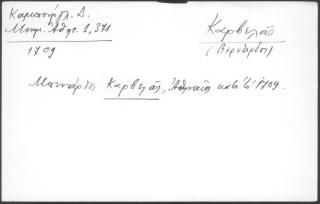 Καμπούρογλ. Δ.
Μνημ. Ἀθην. 2, 371
1709
Καρβελᾶς
(Βερνάρδος)
Μπενάρδος Καρβελᾶς, Ἀθηναῖος κατὰ τὸ 1709.